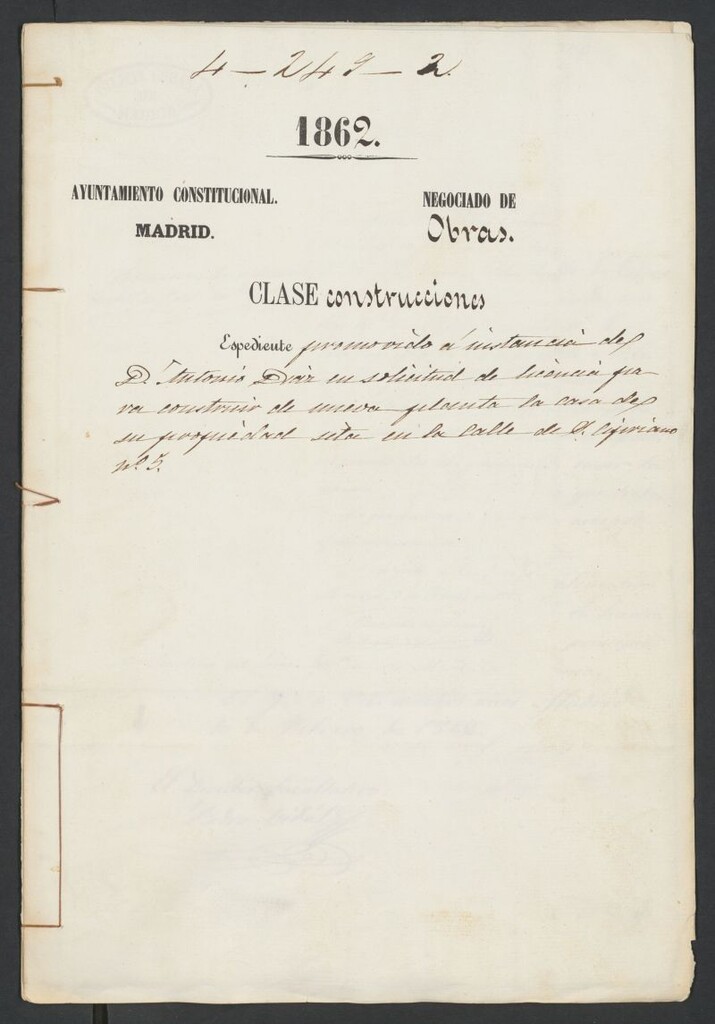 4-249-2.
1862.
AYUNTAMIENTO CONSTITUCIONAL.
MADRID.
NEGOCIADO DE
Obras.
CLASE construcciones
Espediente promovido á instancia de
D. Antonio Diaz en solicitud de licencia pa
ra construir de nueva planta la casa de
su propiedad sita en la calle de S. Cipriano
nº. 5.